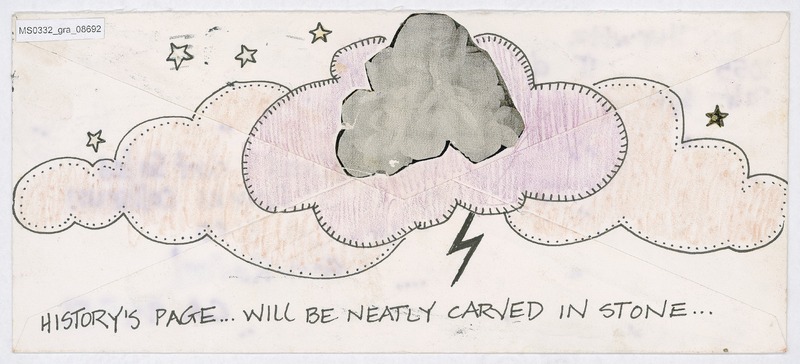 MS0332_gra_08692
HISTORY'S PAGE... WILL BE NEATLY CARVED IN STONE...